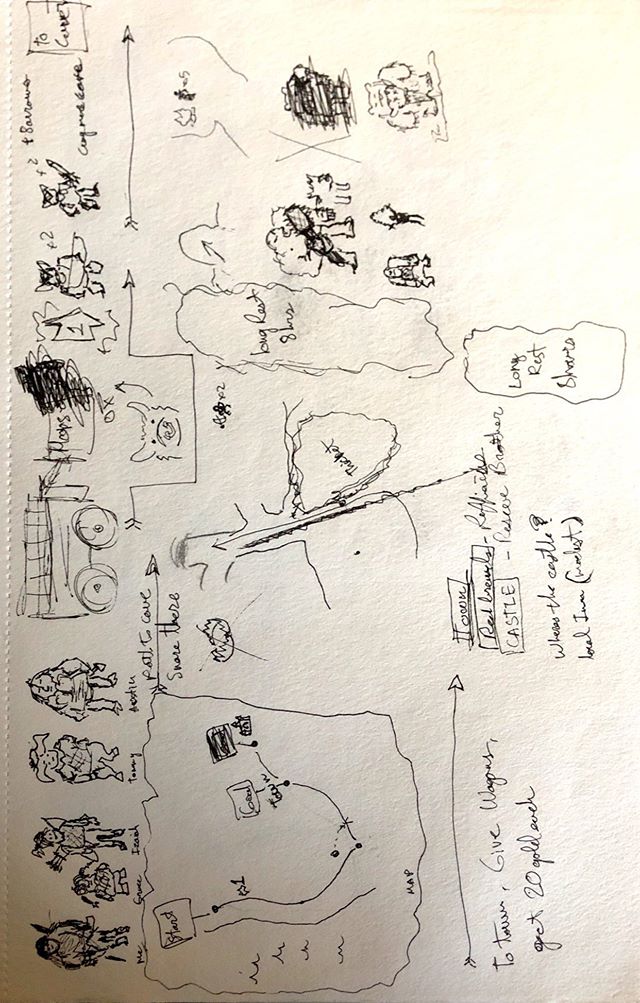 Me
Grace
Izaiah
Tommy
Austin
OX
1
x2
x2
+8 arrows
To
Start
#1
Goal
Town
MAP
Path to cave
Snare there
x2
Thicket
Long Rest
8 hrs
x5
To town, Give Wagons,
get 20 gold each
Town
Redbrands - Ruffians
CASTLE - Rescue Brother
Wheres the castle?
local Inn (modest)
Long
Rest
8 hours